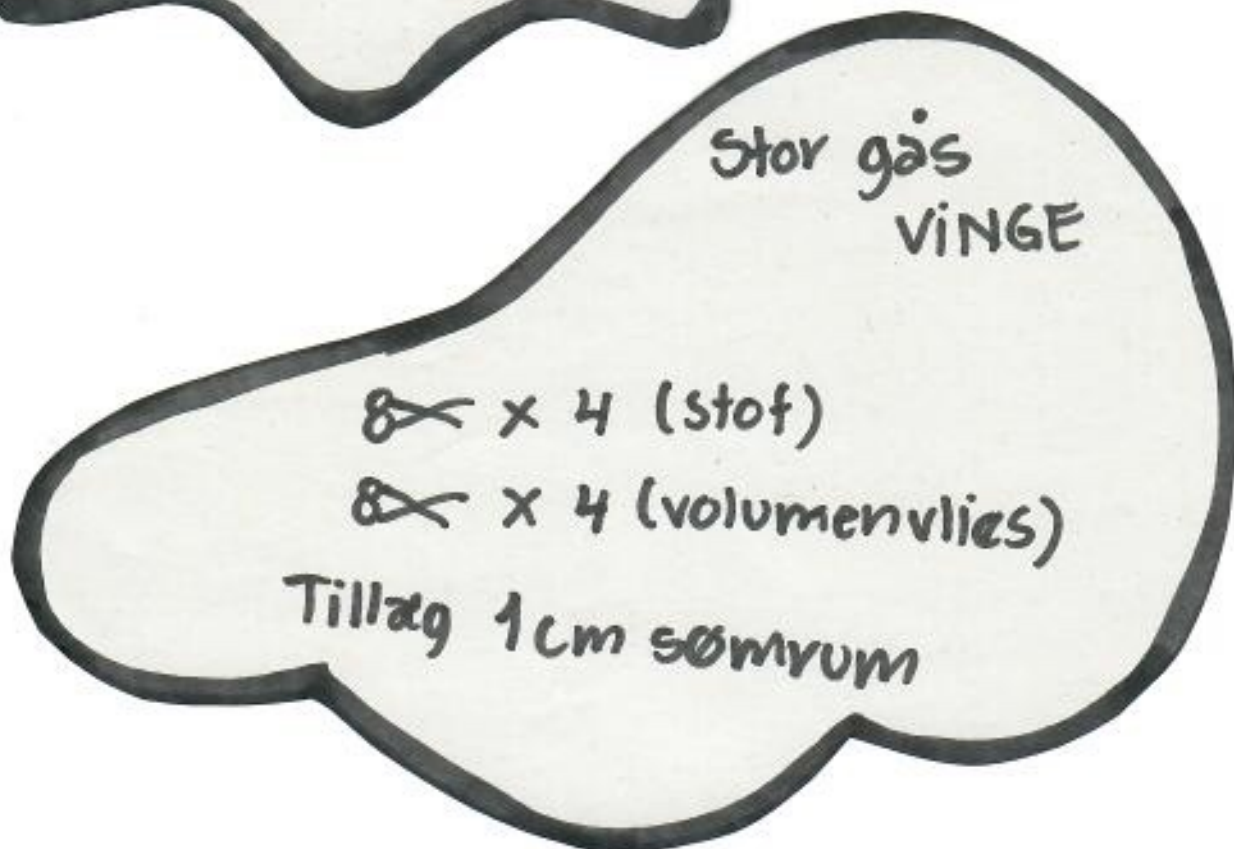 Stor gås
VINGE
✂ x 4 (stof)
✂ x 4 (volumenvlies)
Tillæg 1cm sømrum